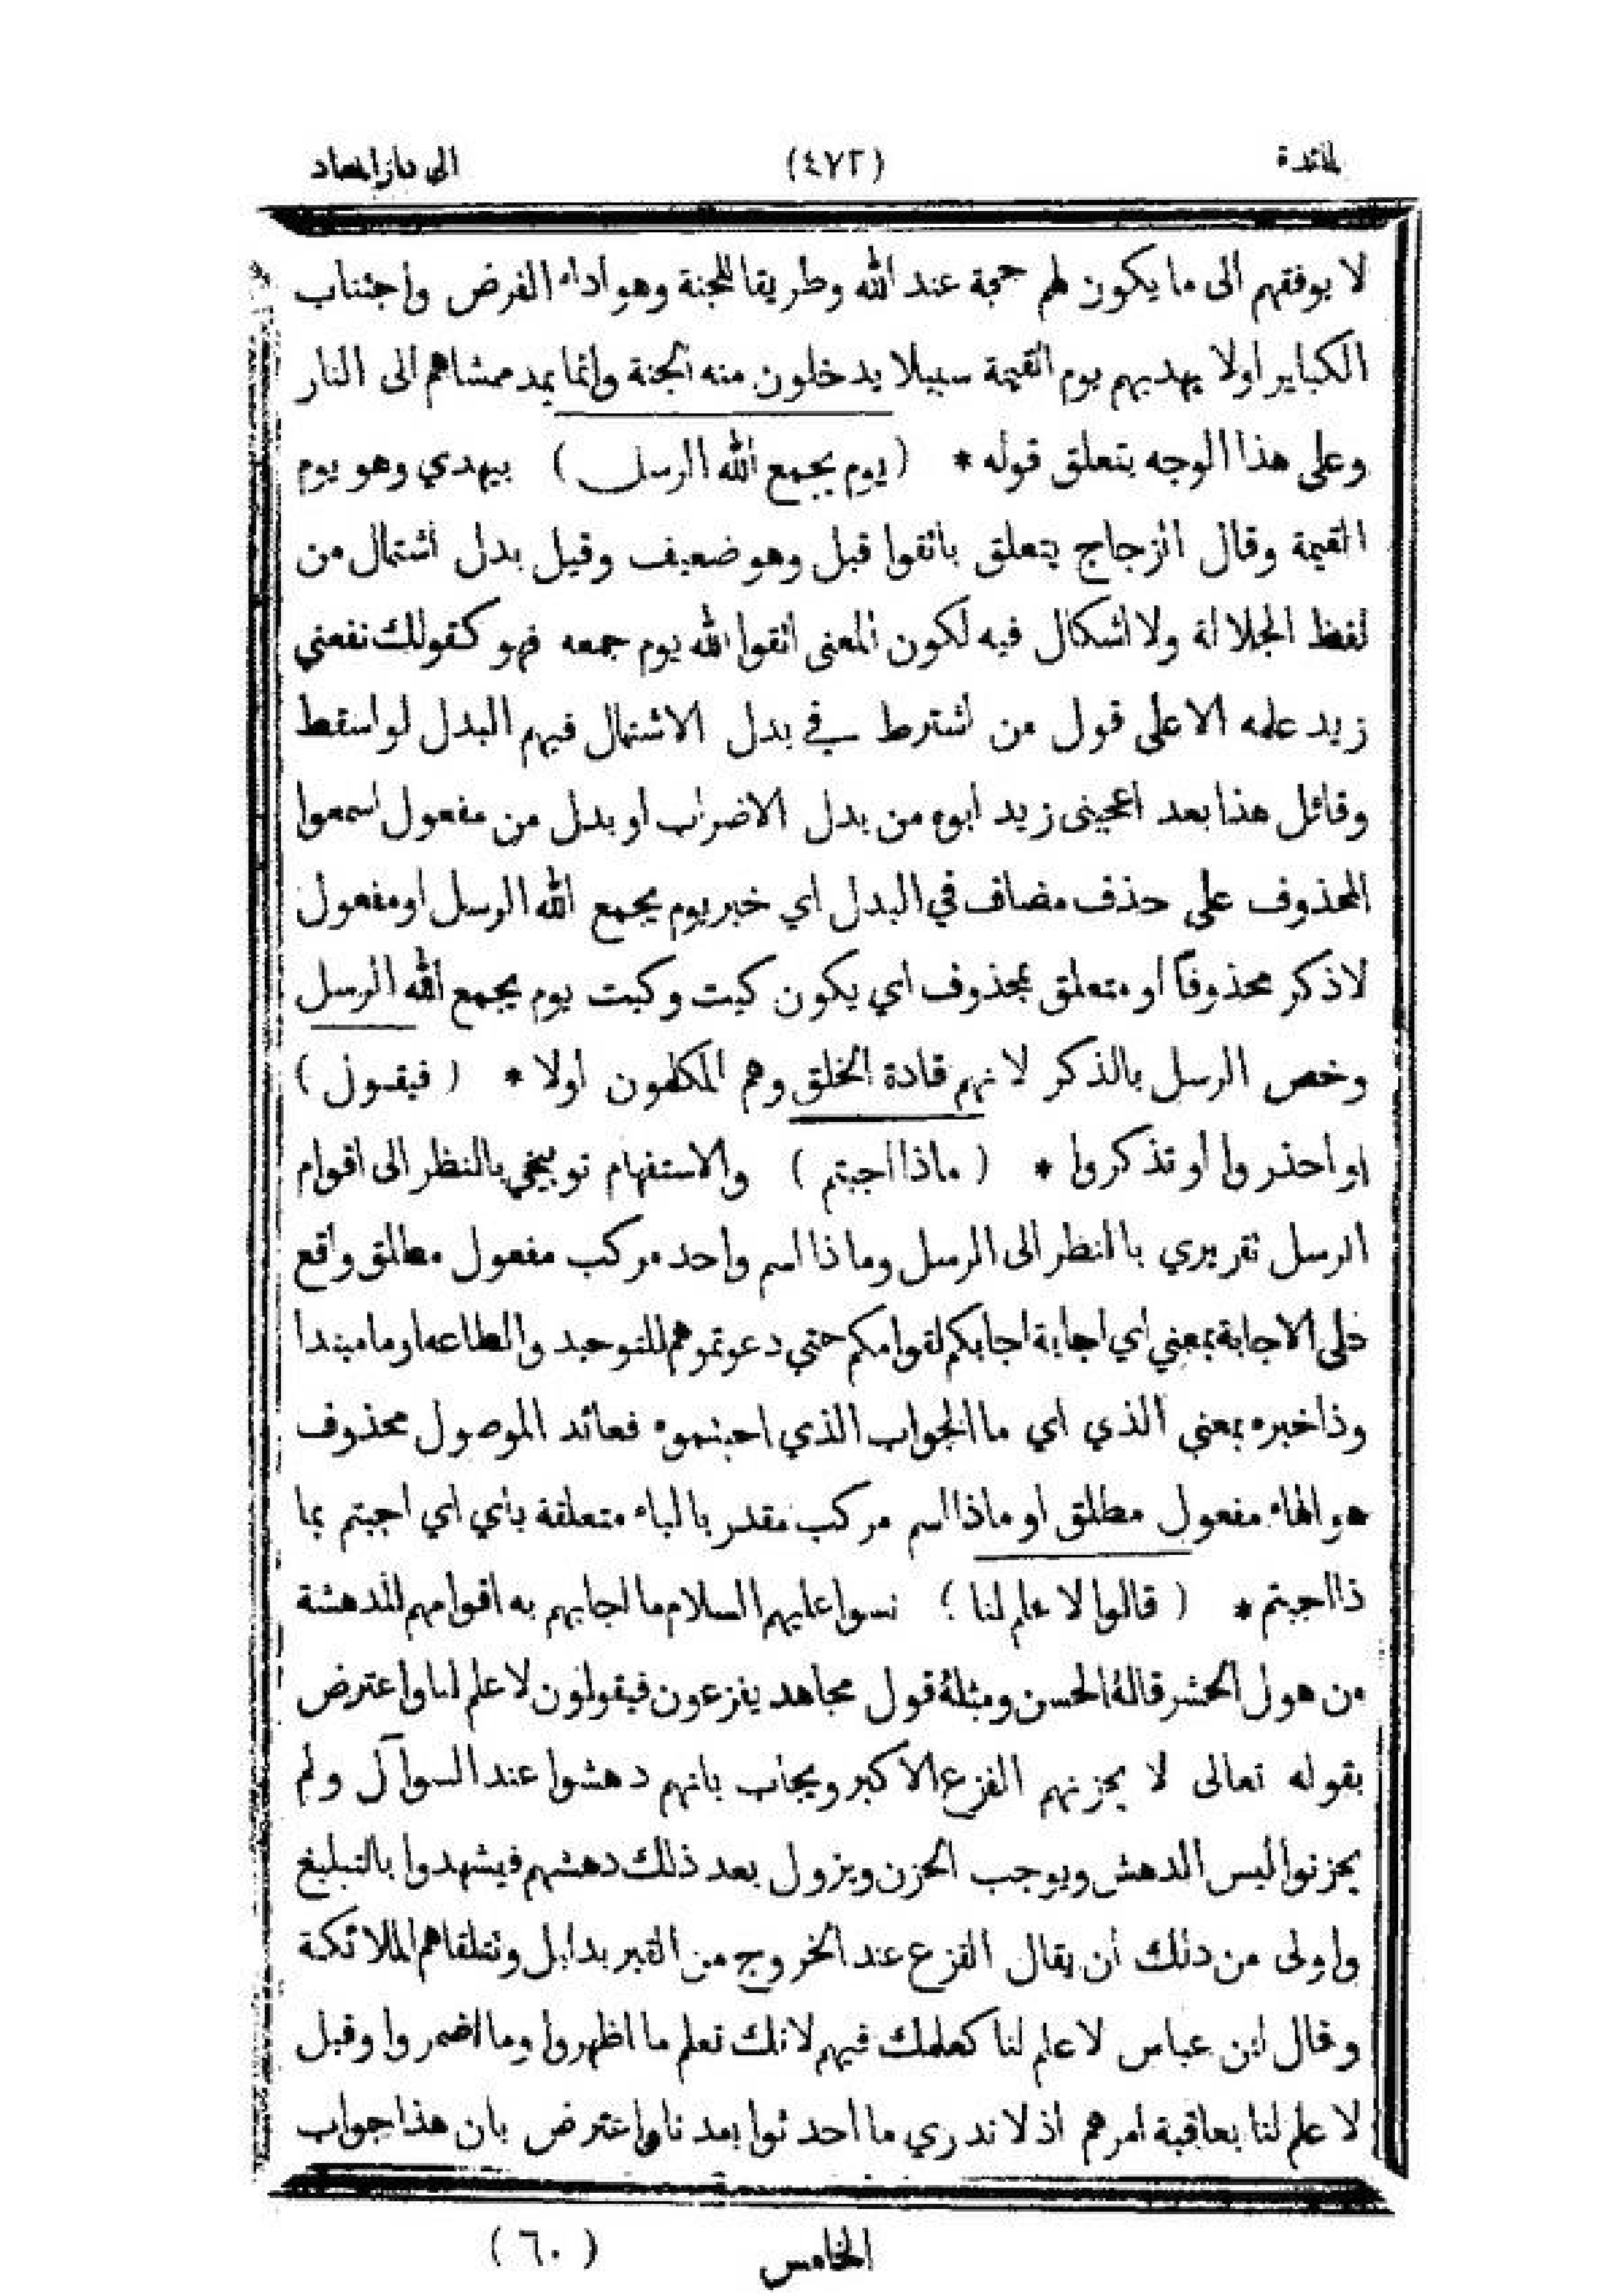 المائدة (٤٧٢) الى دار المعاد
لا يوفقهم الى ما يكون لهم حجة عند الله وطريقا للجنة وهو اداء الفرض واجتناب
الكباير اولا يهديهم يوم القيمة سبيلا يدخلون منه الجنة وانما يمد ممشاهم الى النار
وعلى هذا الوجه يتعلق قوله * ( يوم يجمع الله الرسل ) بيهدي وهو يوم
القيمة وقال الزجاج يتعلق باتقوا قبل وهو ضعيف وقيل بدل اشتمال من
لفظ الجلالة ولا اشكال فيه لكون المعنى اتقوا الله يوم جمعه فهو كقولك نفعني
زيد علمه الا على قول من اشترط في بدل الاشتمال فيهم البدل لو اسقط
وقائل هذا بعد اعجبنى زيد ابوه من بدل الاضراب او بدل من مفعول اسمعوا
المحذوف على حذف مضاف في البدل اي خبر يوم يجمع الله الرسل او مفعول
لاذكر محذوفاً او متعلق بمحذوف اي يكون كيت وكيت يوم يجمع الله الرسل
وخص الرسل بالذكر لانهم قادة الخلق وهم المكلمون اولا * ( فيقول )
او احذروا او تذكروا * ( ماذا اجبتم ) والاستفهام توبيخي بالنظر الى اقوام
الرسل تقريري بالنظر الى الرسل وماذا اسم واحد مركب مفعول مطلق واقع
على الاجابة بمعني اي اجابة اجابكم لقوامكم حتي دعوتموهم للتوحيد والطاعه او ما مبتدا
وذا خبره بمعني الذي اي ما الجواب الذي اجبتموه فعائد الموصول محذوف
هو الهاء مفعول مطلق او ماذا اسم مركب مقدر بالباء متعلقة باي اي اجبتم بما
ذا اجبتم * ( قالوا لا علم لنا ) نسوا عليهم السلام ما اجابهم به اقوامهم للدهشة
من هول المحشر قاله الحسن ومثله قول مجاهد يفزعون فيقولون لا علم لنا واعترض
بقوله تعالى لا يحزنهم الفزع الاكبر ويجاب بانهم دهشوا عند السوآل ولم
يحزنوا ليس الدهش ويوجب الحزن ويزول بعد ذلك دهشهم فيشهدوا بالتبليغ
واولى من ذلك ان يقال الفزع عند الخروج من القبر بدليل وتتلقاهم الملائكة
وقال ابن عباس لا علم لنا كعلمك فيهم لانك تعلم ما اظهروا وما اضمروا وقيل
لا علم لنا بعاقبة امرهم اذ لا ندري ما احدثوا بعدنا واعترض بان هذا جواب
الخامس (٦٠)